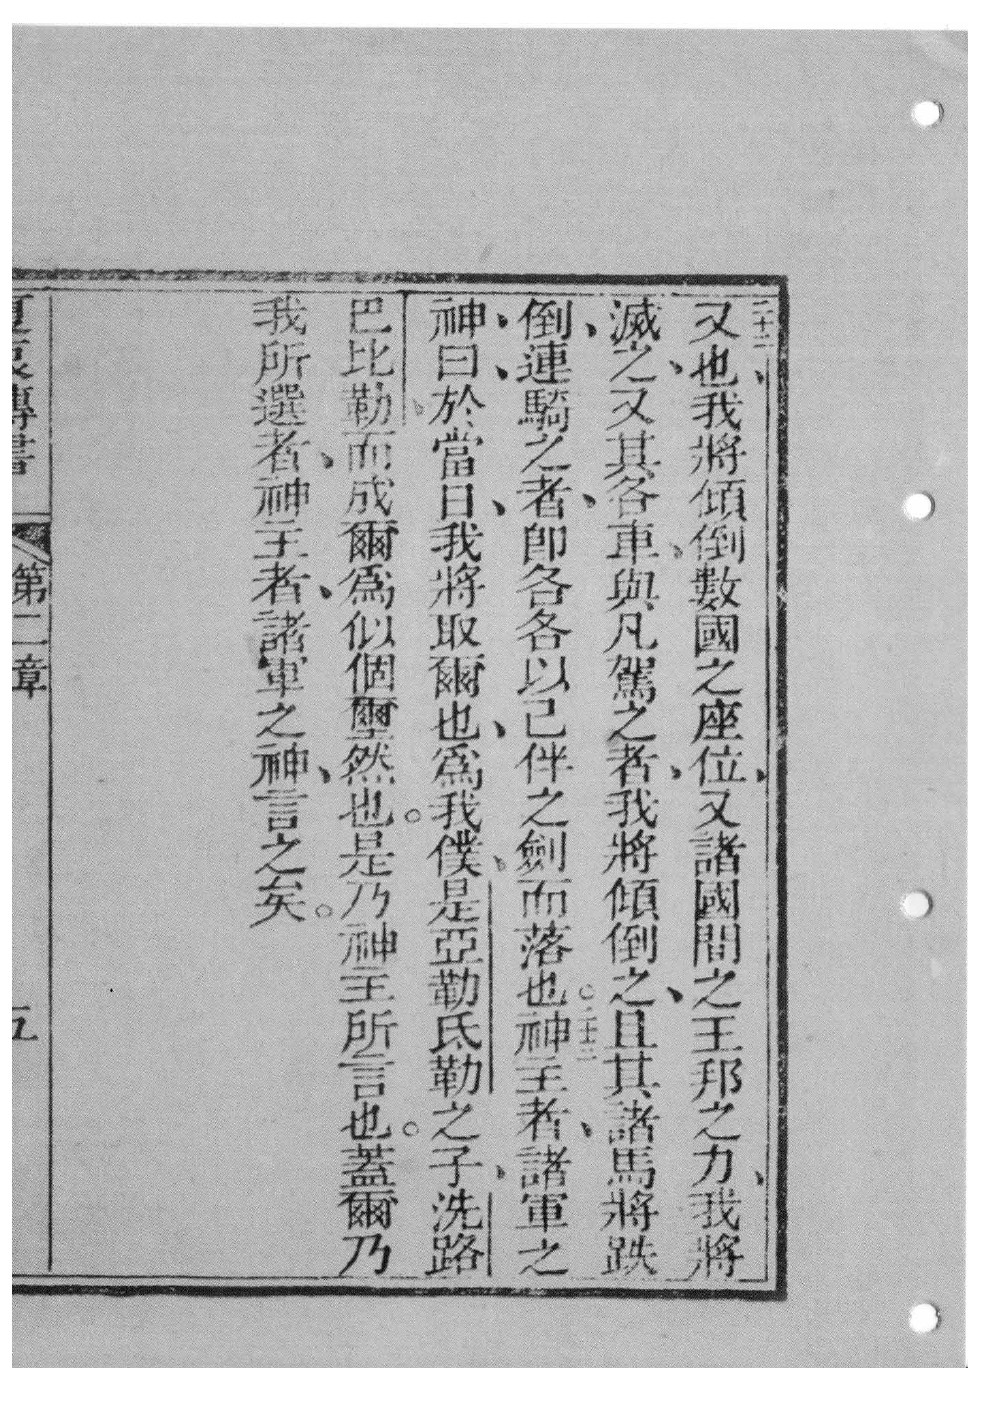 二十二又也、我將傾倒數國之座位、又諸國間之王邦之力、我將
滅之、又其各車、與凡駕之者、我將傾倒之、且其諸馬將跌
倒、連騎之者、卽各各以己伴之劍而落也。二十三神主者、諸軍之
神、曰、於當日、我將取爾也、爲我僕、是亞勒氐勒之子、洗路
巴比勒、而成爾爲似個壐然也。是乃神主所言也。蓋爾乃
我所選者、神主者、諸軍之神、言之矣。
夏哀傳書 第二章 五